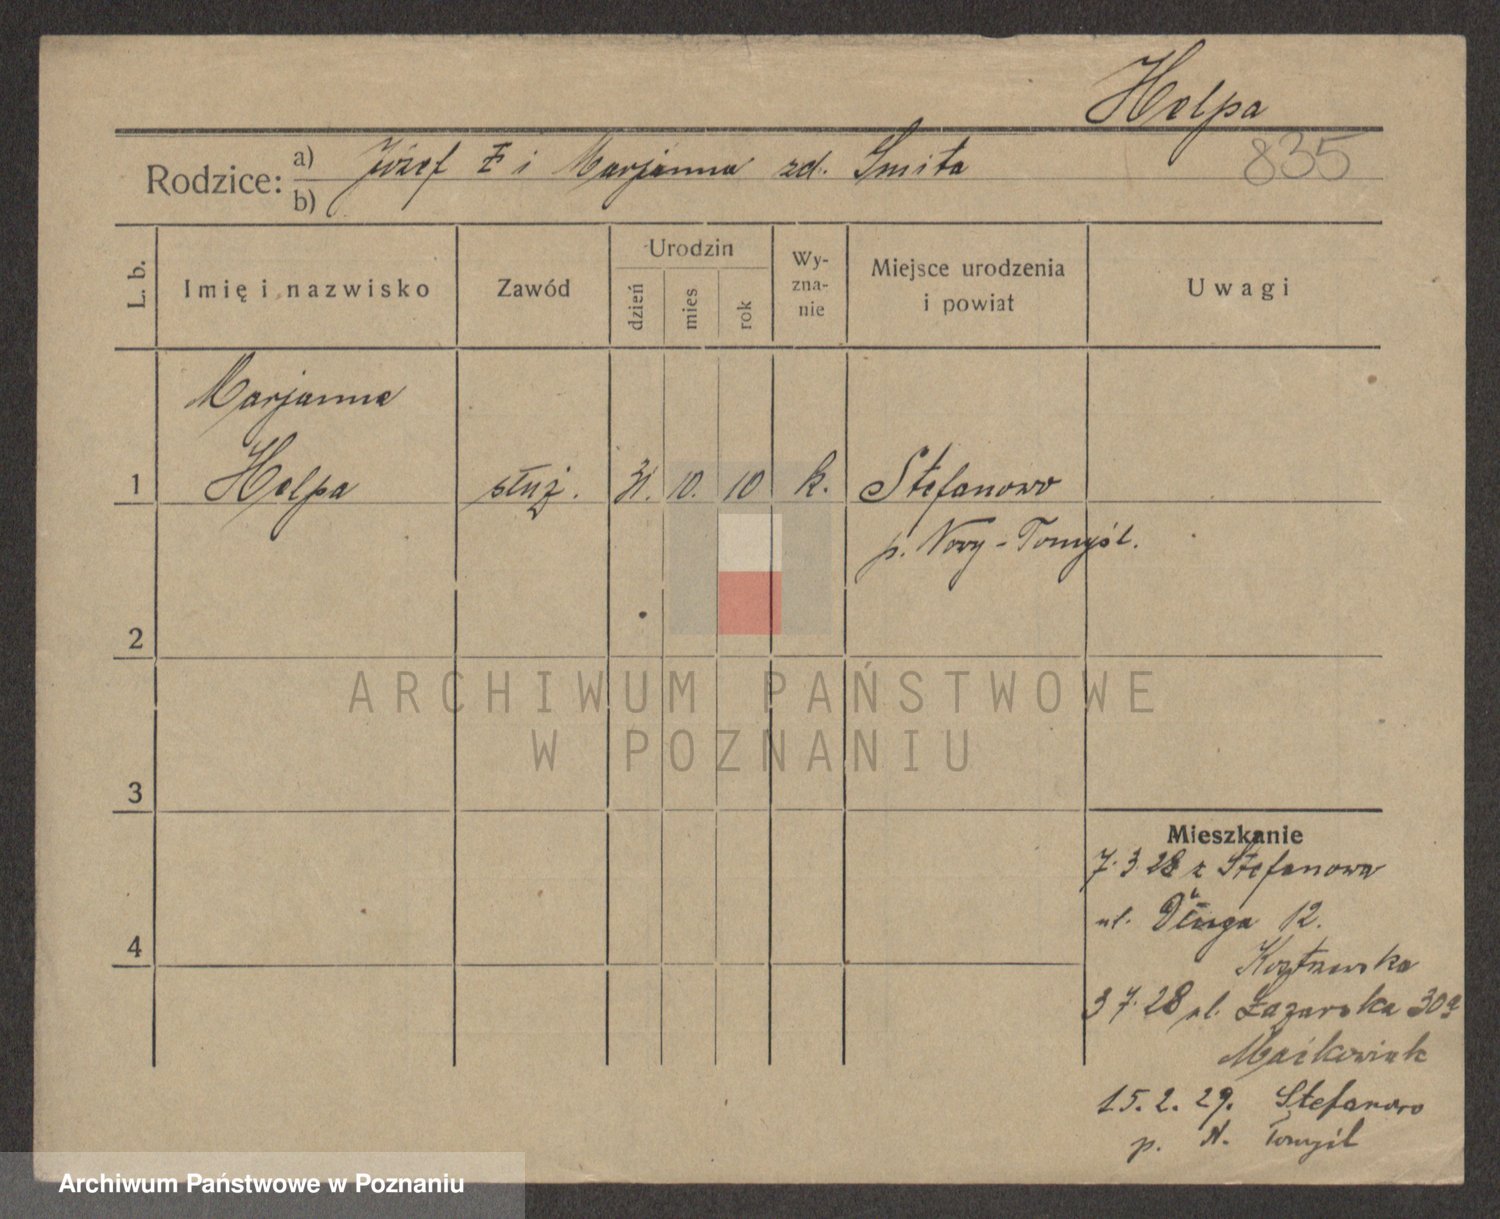 Helpa
835
Rodzice: a) Józef i Marjanna zd. Smita
b)
L. b. Imię i nazwisko Zawód Urodzin dzień mies rok Wy-zna-nie Miejsce urodzenia i powiat Uwagi
Marjanna
1 Helpa służ. 31. 10. 10 k. Stefanowo
p. Nowy-Tomyśl.
2
ARCHIWUM PAŃSTWOWE
W POZNANIU
3
Mieszkanie
7.3 28 z Stefanowa
4
ul. Długa 12.
3 7. 28 ul. Łazarska 30a
Maćkowiak
15. 2. 29. Stefanowo
p. N. Tomyśl
Archiwum Państwowe w Poznaniu